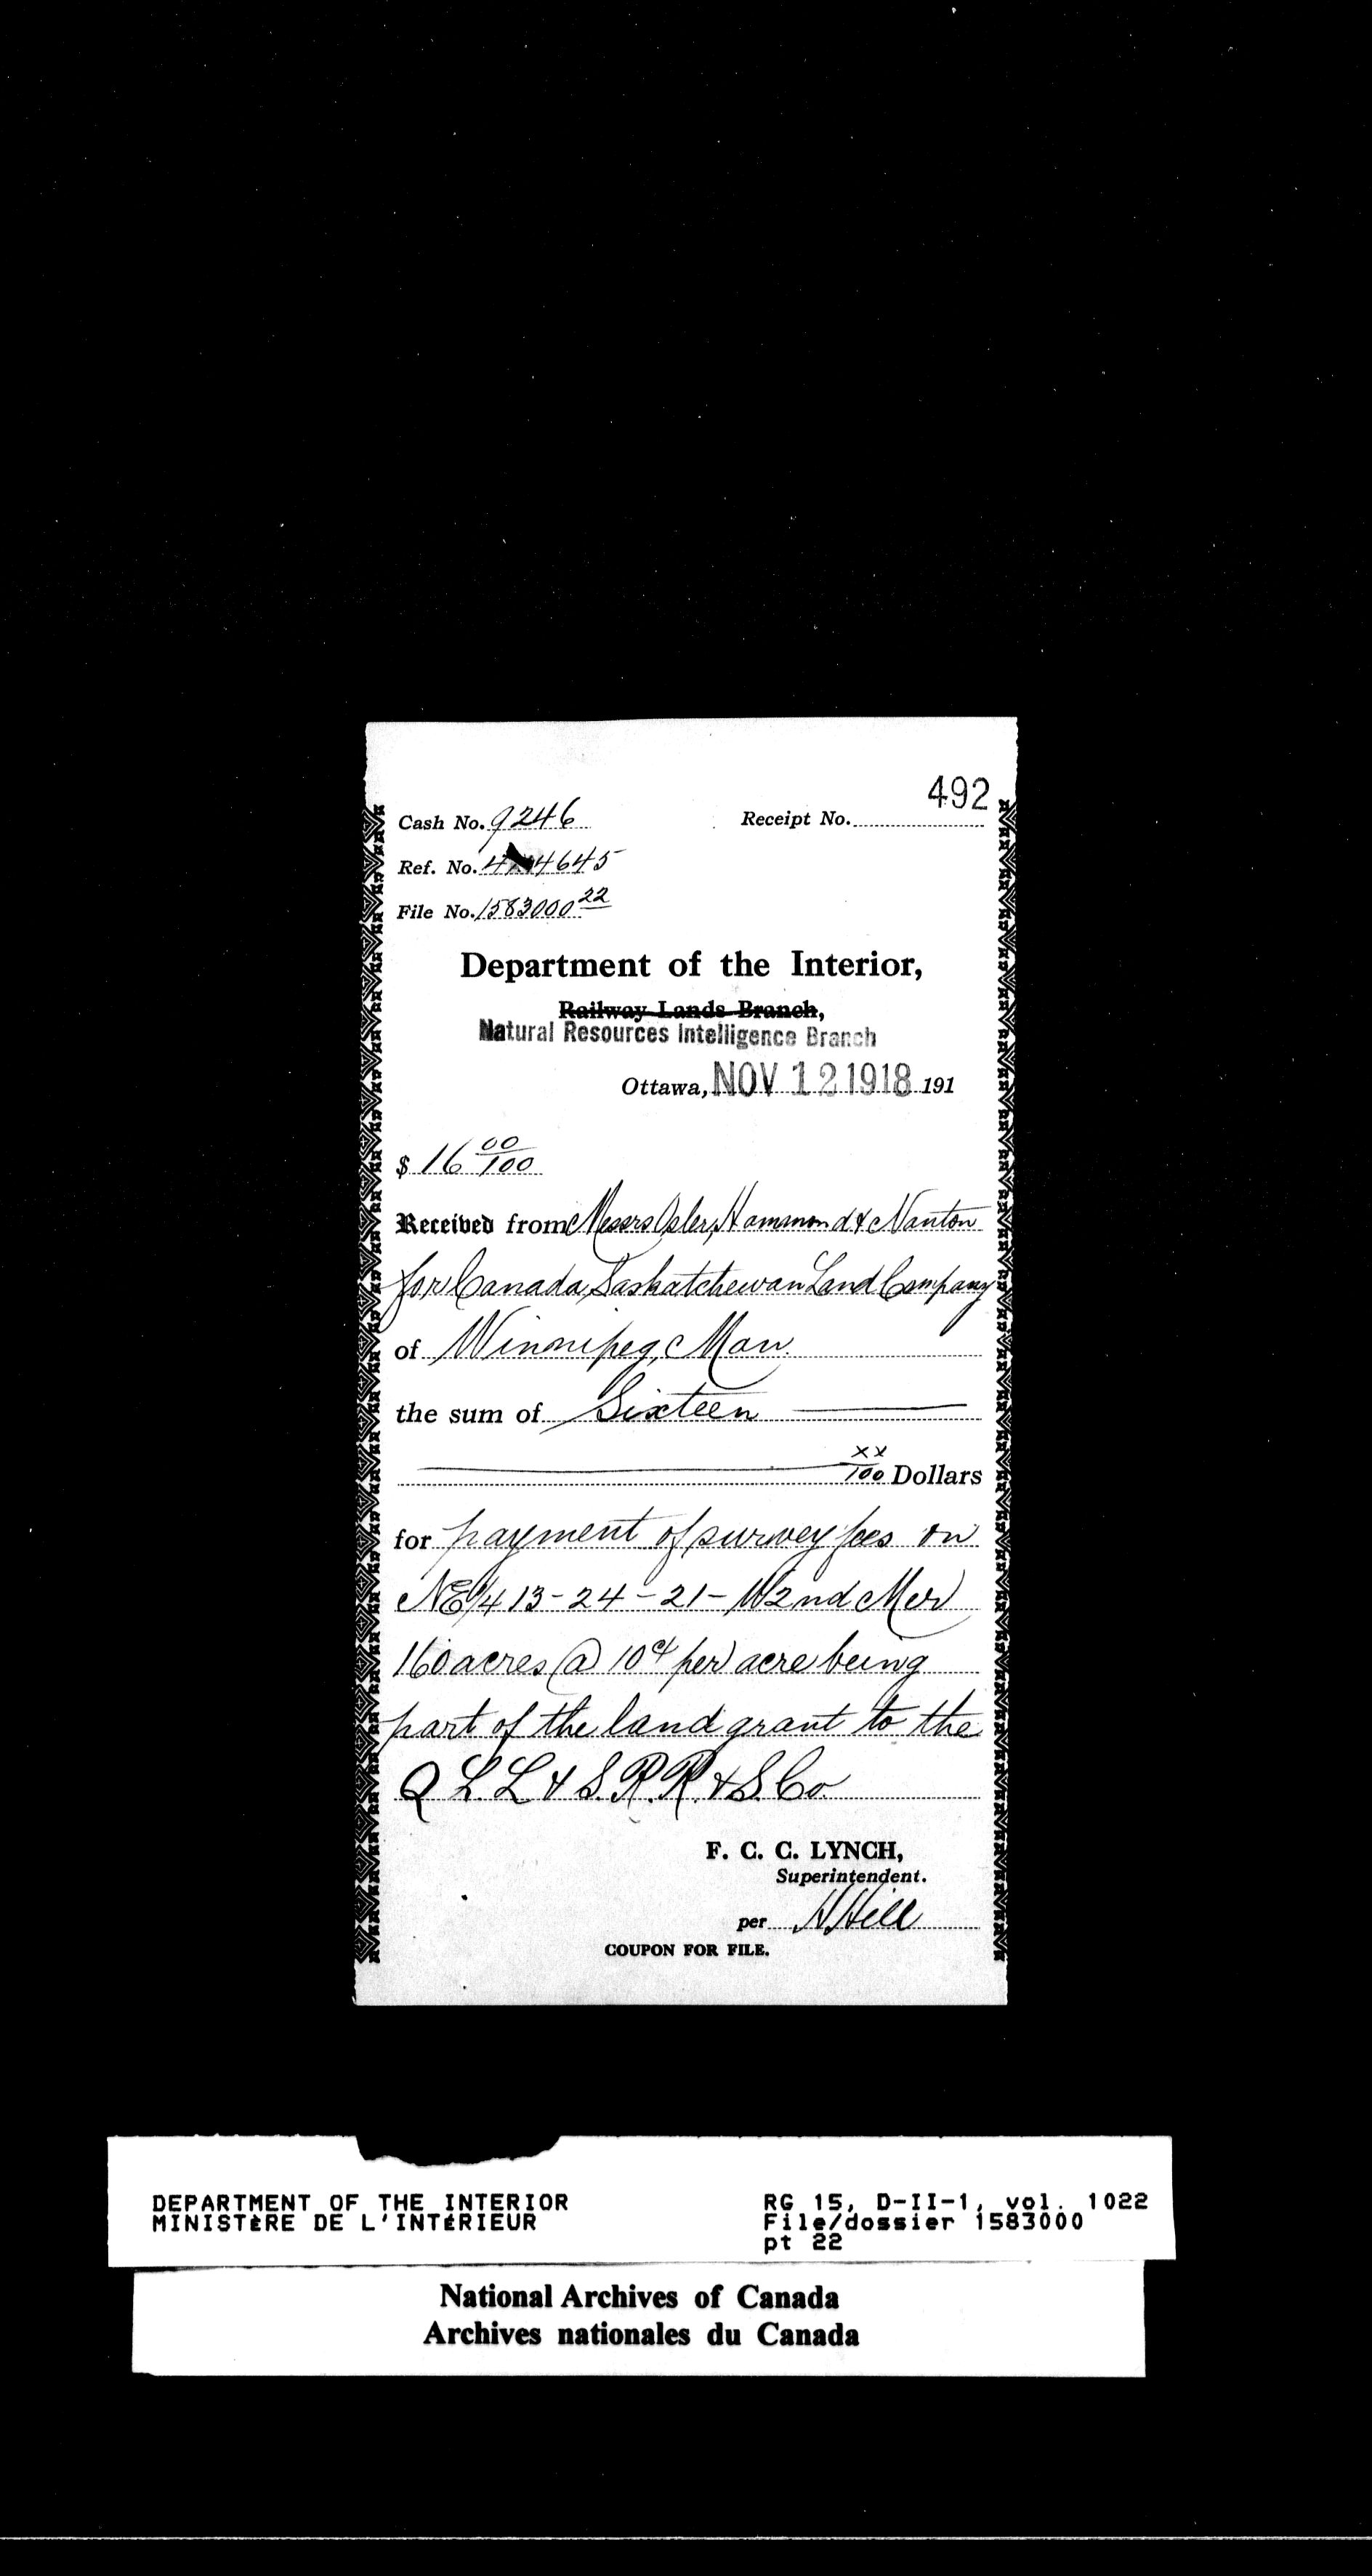 492
Cash No. 9246 Receipt No.
Ref. No. 4645
File No. 1583000 22
Department of the Interior,
Railway Lands Branch,
Natural Resources Intelligence Branch
Ottawa, NOV 12 1918 191
$ 16 00/100
Received from Messrs Osler, Hammond & Nanton
for Canada Saskatchewan Land Company
of Winnipeg, Man.
the sum of Sixteen
xx/100 Dollars
for payment of survey fees on
NE 1/4 13-24-21-W2nd Mer
160 acres @ 10¢ per acre being
part of the land grant to the
Q L. L & S. R. R. & S. Co.
F. C. C. LYNCH,
Superintendent.
per H Hill
COUPON FOR FILE.
DEPARTMENT OF THE INTERIOR RG 15, D-II-1, vol. 1022
MINISTÈRE DE L'INTÉRIEUR File/dossier 1583000
pt 22
National Archives of Canada
Archives nationales du Canada